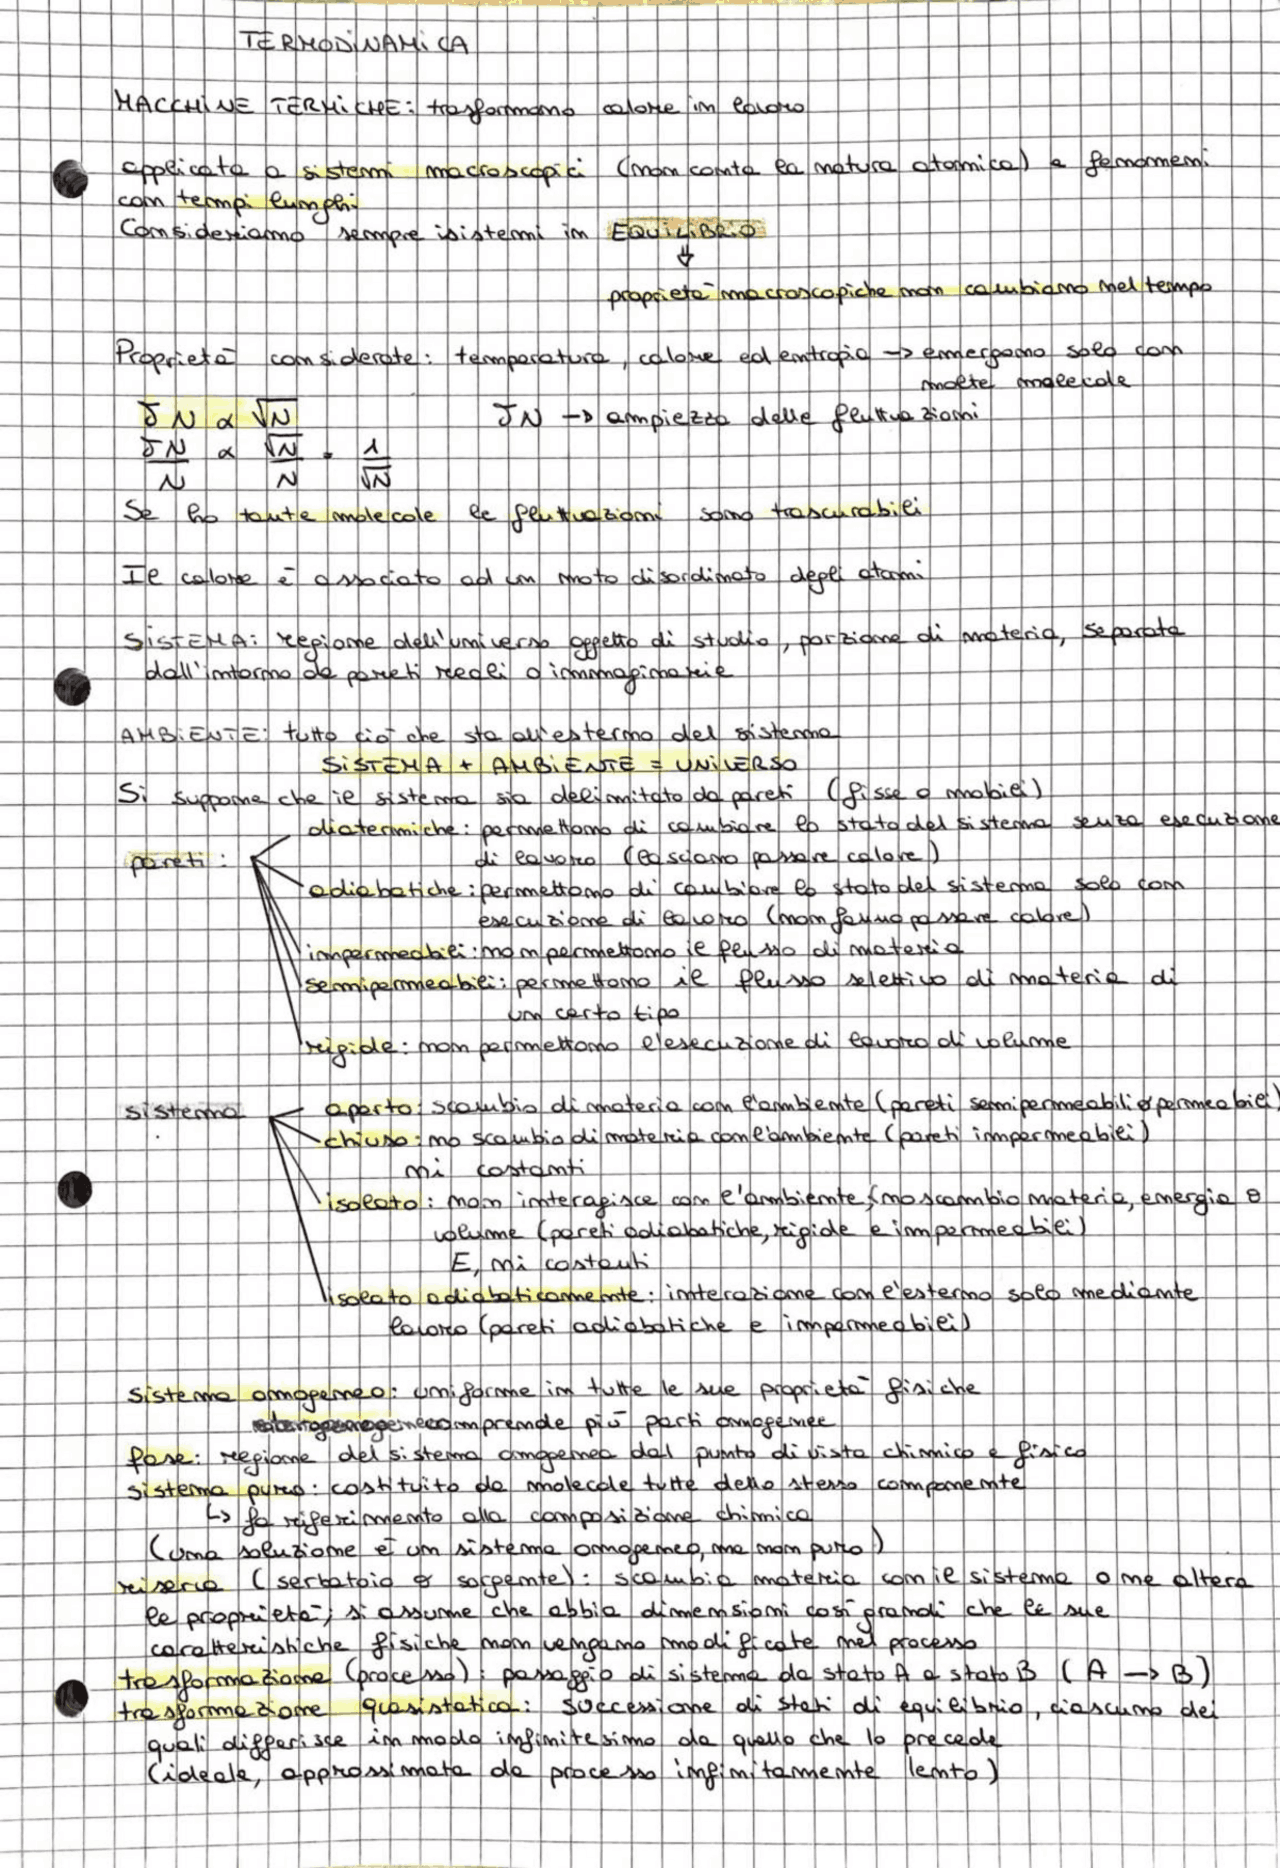 TERMODINAMICA
MACCHINE TERMICHE: trasformano calore in lavoro
applicata a sistemi macroscopici (non conta la natura atomica) e fenomeni
con tempi lunghi
Consideriamo sempre i sistemi in EQUILIBRIO
↓
proprietà macroscopiche non cambiano nel tempo
Proprietà considerate: temperatura, calore ed entropia -> emergono solo con
molte molecole
δN ∝ √N    δN -> ampiezza delle fluttuazioni
δN/N ∝ √N/N = 1/√N
Se ho tante molecole le fluttuazioni sono trascurabili
Il calore è associato ad un moto disordinato degli atomi
SISTEMA: regione dell'universo oggetto di studio, porzione di materia, separata
dall'intorno da pareti reali o immaginarie
AMBIENTE: tutto ciò che sta all'esterno del sistema
SISTEMA + AMBIENTE = UNIVERSO
Si suppone che il sistema sia delimitato da pareti (fisse o mobili)
diatermiche: permettono di cambiare lo stato del sistema senza esecuzione
pareti:
di lavoro (lasciano passare calore)
adiabatiche: permettono di cambiare lo stato del sistema solo con
esecuzione di lavoro (non fanno passare calore)
impermeabili: non permettono il flusso di materia
semipermeabili: permettono il flusso selettivo di materia di
un certo tipo
rigide: non permettono l'esecuzione di lavoro di volume
sistema
aperto: scambio di materia con l'ambiente (pareti semipermeabili o permeabili)
chiuso: no scambio di materia con l'ambiente (pareti impermeabili)
ni costanti
isolato: non interagisce con l'ambiente, (no scambio materia, energia o
volume (pareti adiabatiche, rigide e impermeabili)
E, ni costanti
isolato adiabaticamente: interazione con l'esterno solo mediante
lavoro (pareti adiabatiche e impermeabili)
sistema omogeneo: uniforme in tutte le sue proprietà fisiche
comprende più parti omogenee
fase: regione del sistema omogenea dal punto di vista chimico e fisico
sistema puro: costituito da molecole tutte dello stesso componente
↳ fa riferimento alla composizione chimica
(una soluzione è un sistema omogeneo, ma non puro)
riserva (serbatoio o sorgente): scambia materia con il sistema o ne altera
le proprietà; si assume che abbia dimensioni così grandi che le sue
caratteristiche fisiche non vengano modificate nel processo
trasformazione (processo): passaggio di sistema da stato A a stato B (A -> B)
trasformazione quasistatica: successione di stati di equilibrio, ciascuno dei
quali differisce in modo infinitesimo da quello che lo precede
(ideale, approssimata da processo infinitamente lento)